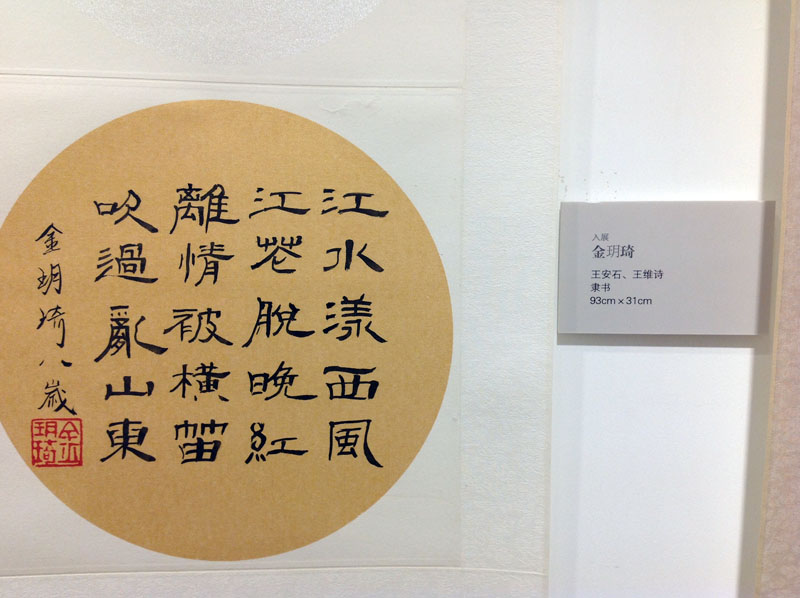 江水漾西風
江花脫晚紅
離情被橫笛
吹過亂山東
金玥琦八歲
入展
金玥琦
王安石、王维诗
隶书
93cm×31cm